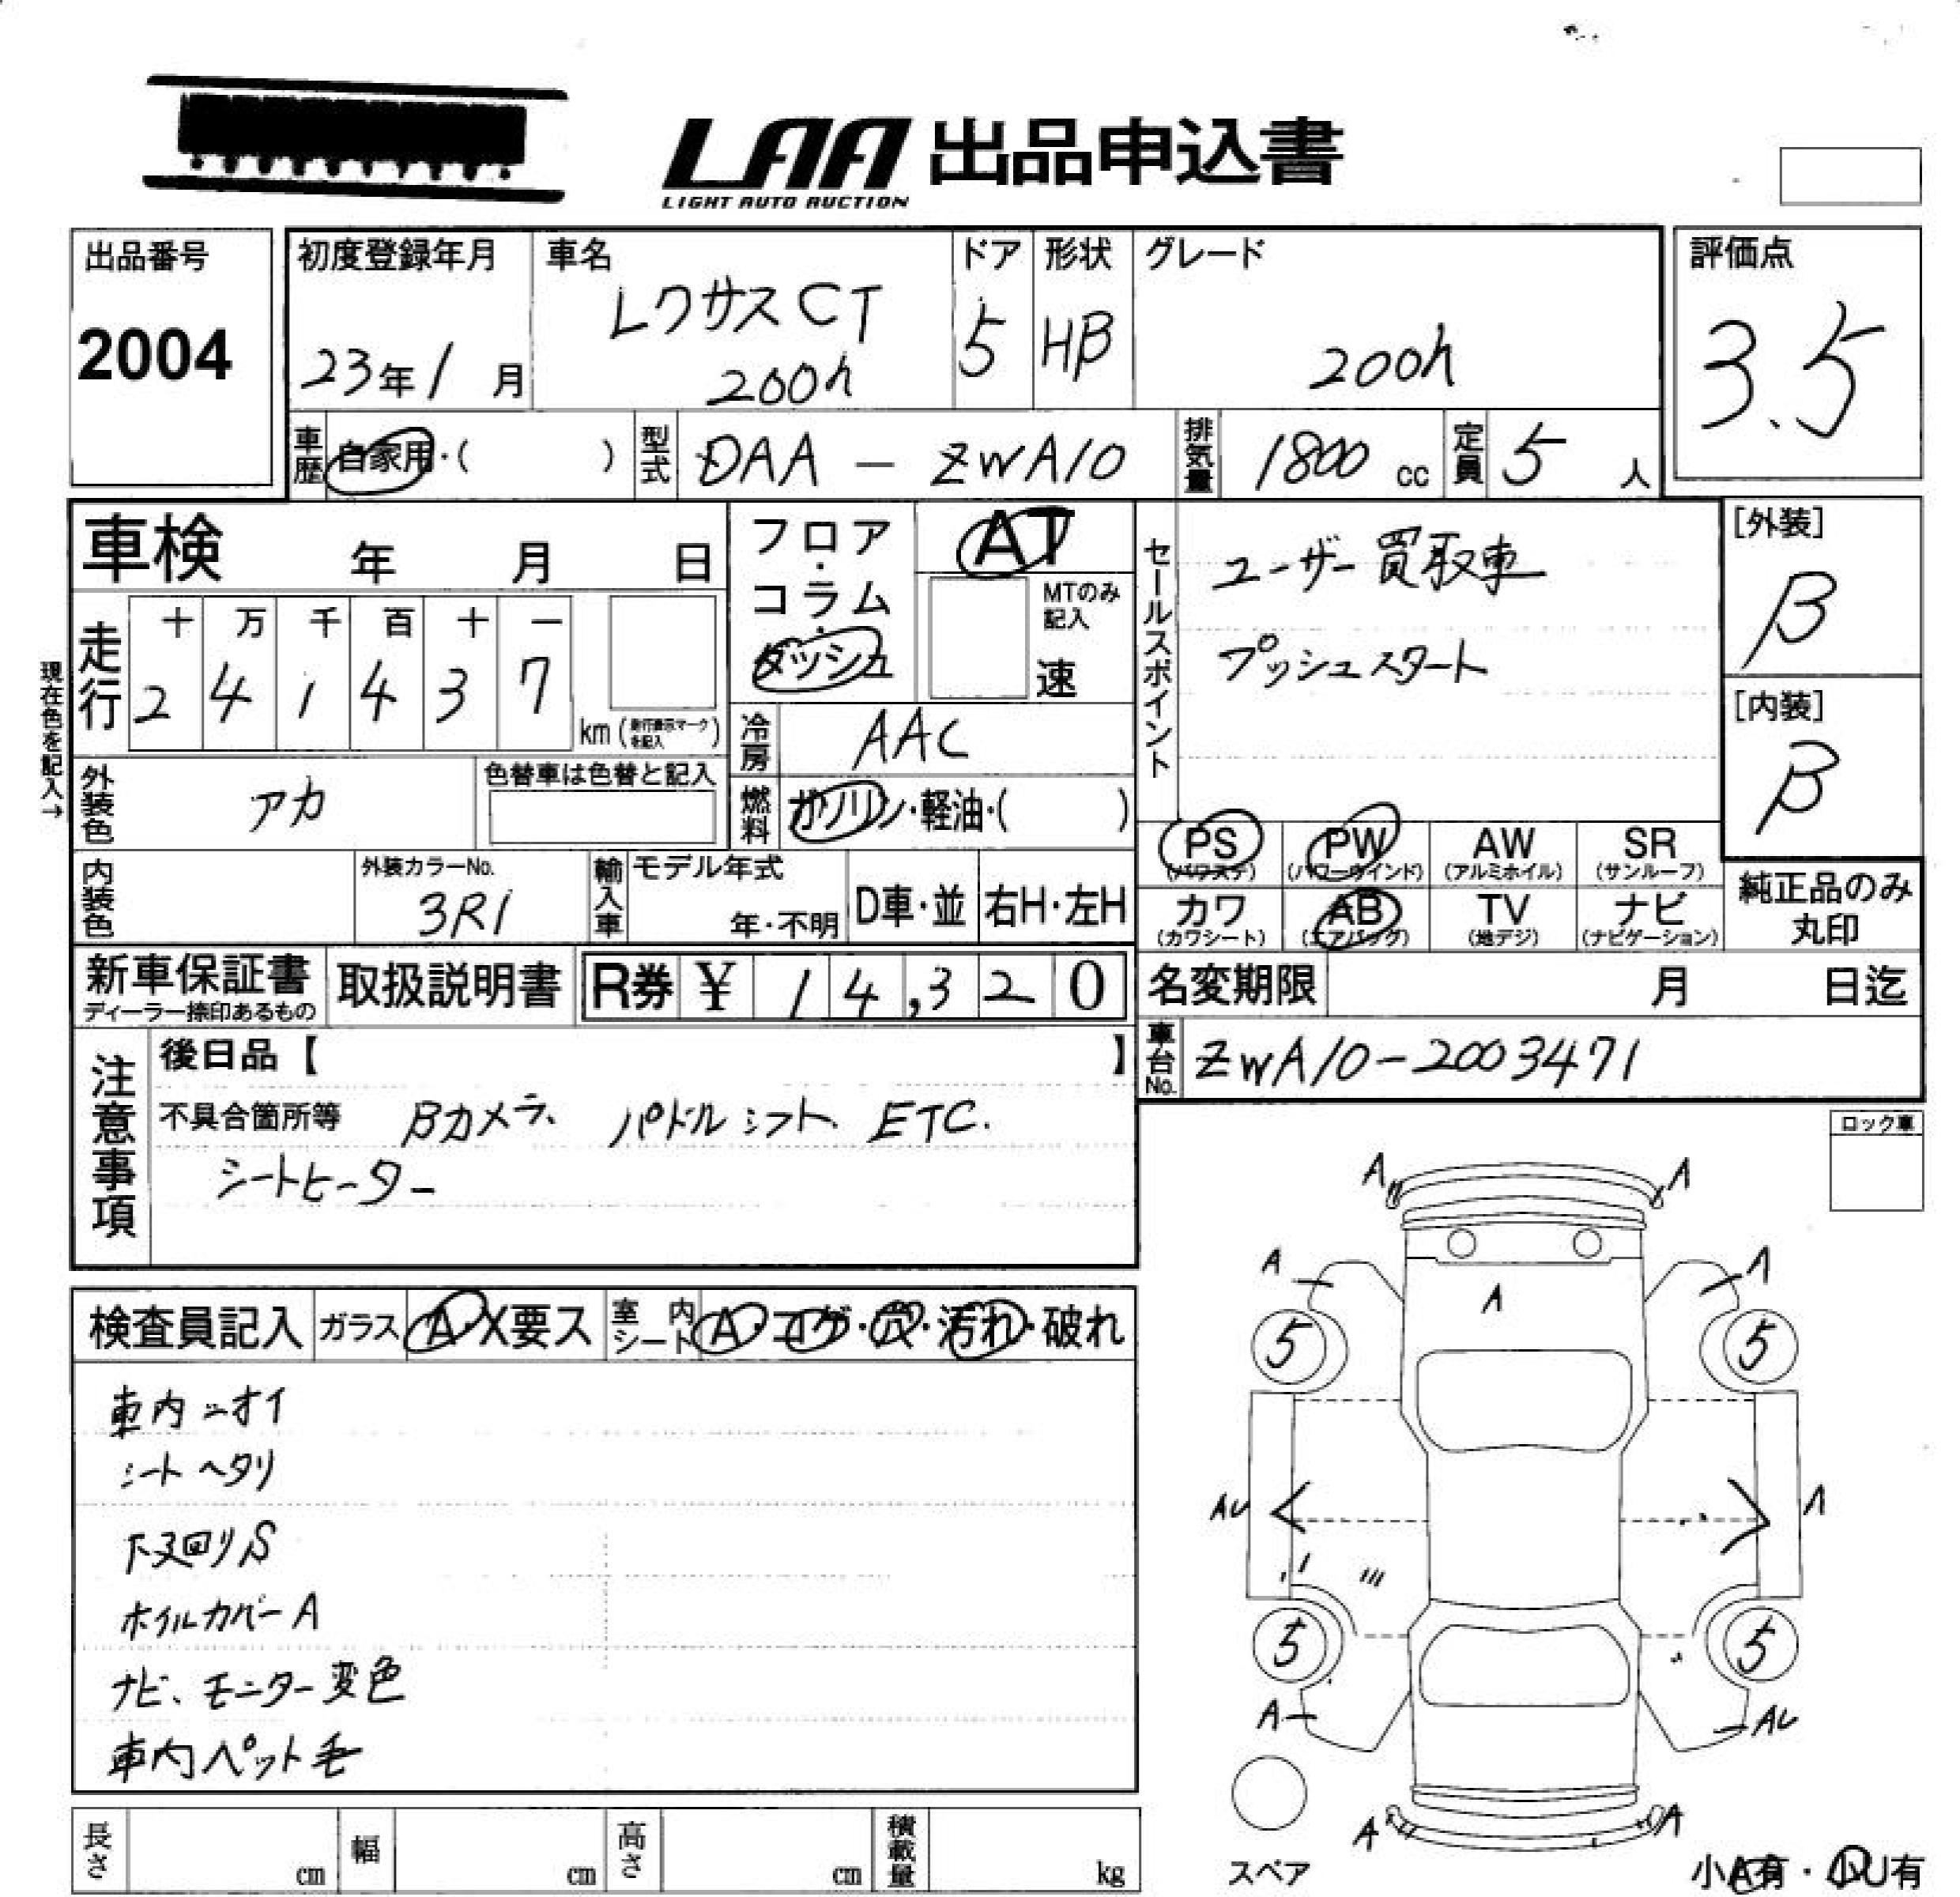 LAA 出品申込書
LIGHT AUTO AUCTION
出品番号
2004
初度登録年月
23年 1 月
車名
レクサスCT
200h
ドア
5
形状
HB
グレード
200h
評価点
3.5
車歴 自家用・( )
型式 DAA - ZWA10
排気量 1800 cc
定員 5 人
車検 年 月 日
フロア・コラム・ダッシュ
AT
MTのみ記入
速
セールスポイント
ユーザー買取車
プッシュスタート
[外装]
B
[内装]
B
現在色を記入→
走行
十 万 千 百 十 一
2 4 1 4 3 7
km (走行表示マークを記入)
冷房 AAC
外装色 アカ
色替車は色替と記入
燃料 ガソリン・軽油・( )
PS (パワステ)
PW (パワーウインド)
AW (アルミホイル)
SR (サンルーフ)
カワ (カワシート)
AB (エアバッグ)
TV (地デジ)
ナビ (ナビゲーション)
純正品のみ丸印
内装色
外装カラーNo.
3R1
輸入車
モデル年式
年・不明
D車・並
右H・左H
新車保証書
ディーラー捺印あるもの
取扱説明書
R券 ¥ 14,320
名変期限 月 日迄
車台No. ZWA10-2003471
注意事項
後日品【 】
不具合箇所等 Bカメラ、パドルシフト、ETC.
シートヒーター
ロック車
検査員記入
ガラス A・X要ス
室内シート A・コゲ・穴・汚れ・破れ
車内ニオイ
シートヘタリ
下廻りS
ホイルカバーA
ナビ、モニター変色
車内ペット毛
A A
A A
A
5 5
AU A
5 5
A AU
A A
スペア
小A有・小U有
長さ cm
幅 cm
高さ cm
積載量 kg